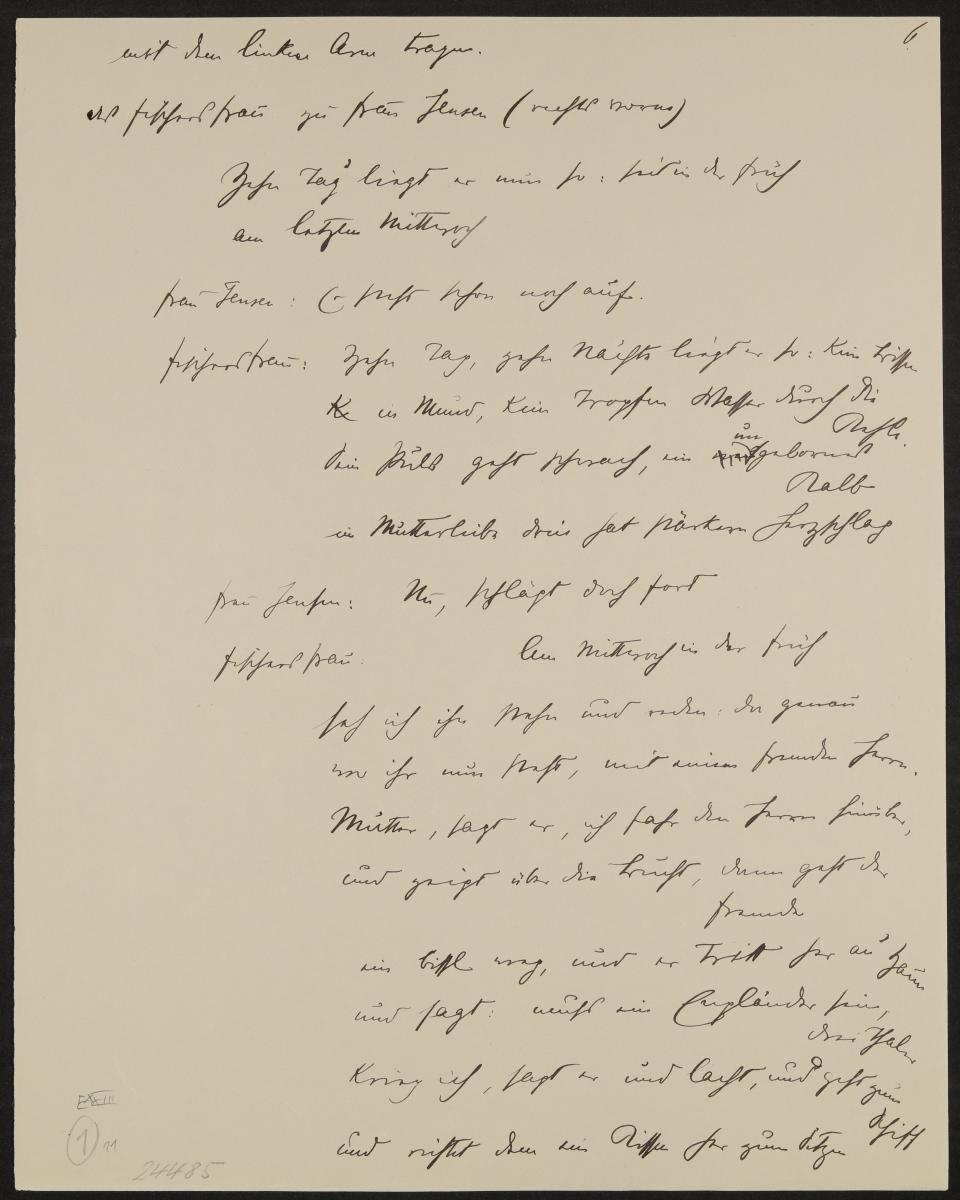 6
mit dem linken Arm tragen.
des Fischers Frau zu Frau Jensen (rechts vorne)
Zehn Tag liegt er nun so: seit in der Früh
am letzten Mittwoch
Frau Jensen: Er steht schon noch auf.
Fischersfrau: Zehn Tag, zehn Nächte liegt er so: Kein Bissen
im Mund, kein Tropfen Wasser durch die
Kehle.
Sein Puls geht schwach, ein
un
geborenes
Kalb
im Mutterleibe drin hat stärkern Herzschlag
Frau Jensen: Nu, schlägt doch fort
Fischersfrau: Am Mittwoch in der Früh
sah ich ihn stehn und reden: da genau
wo ihr nun steht, mit einem fremden Herrn.
Mutter, sagt er, ich fahr den Herrn hinüber,
und zeigt über die Bucht, dann geht der
Fremde
ein bissl weg, und er tritt her an Zaun
und sagt: muss ein Engländer sein,
drei Thaler
Krieg ich, sagt er und lacht, und geht zum
Schiff
und richtet dem ein Kissen her zum Sitzen
EXXIII
1 11
24485